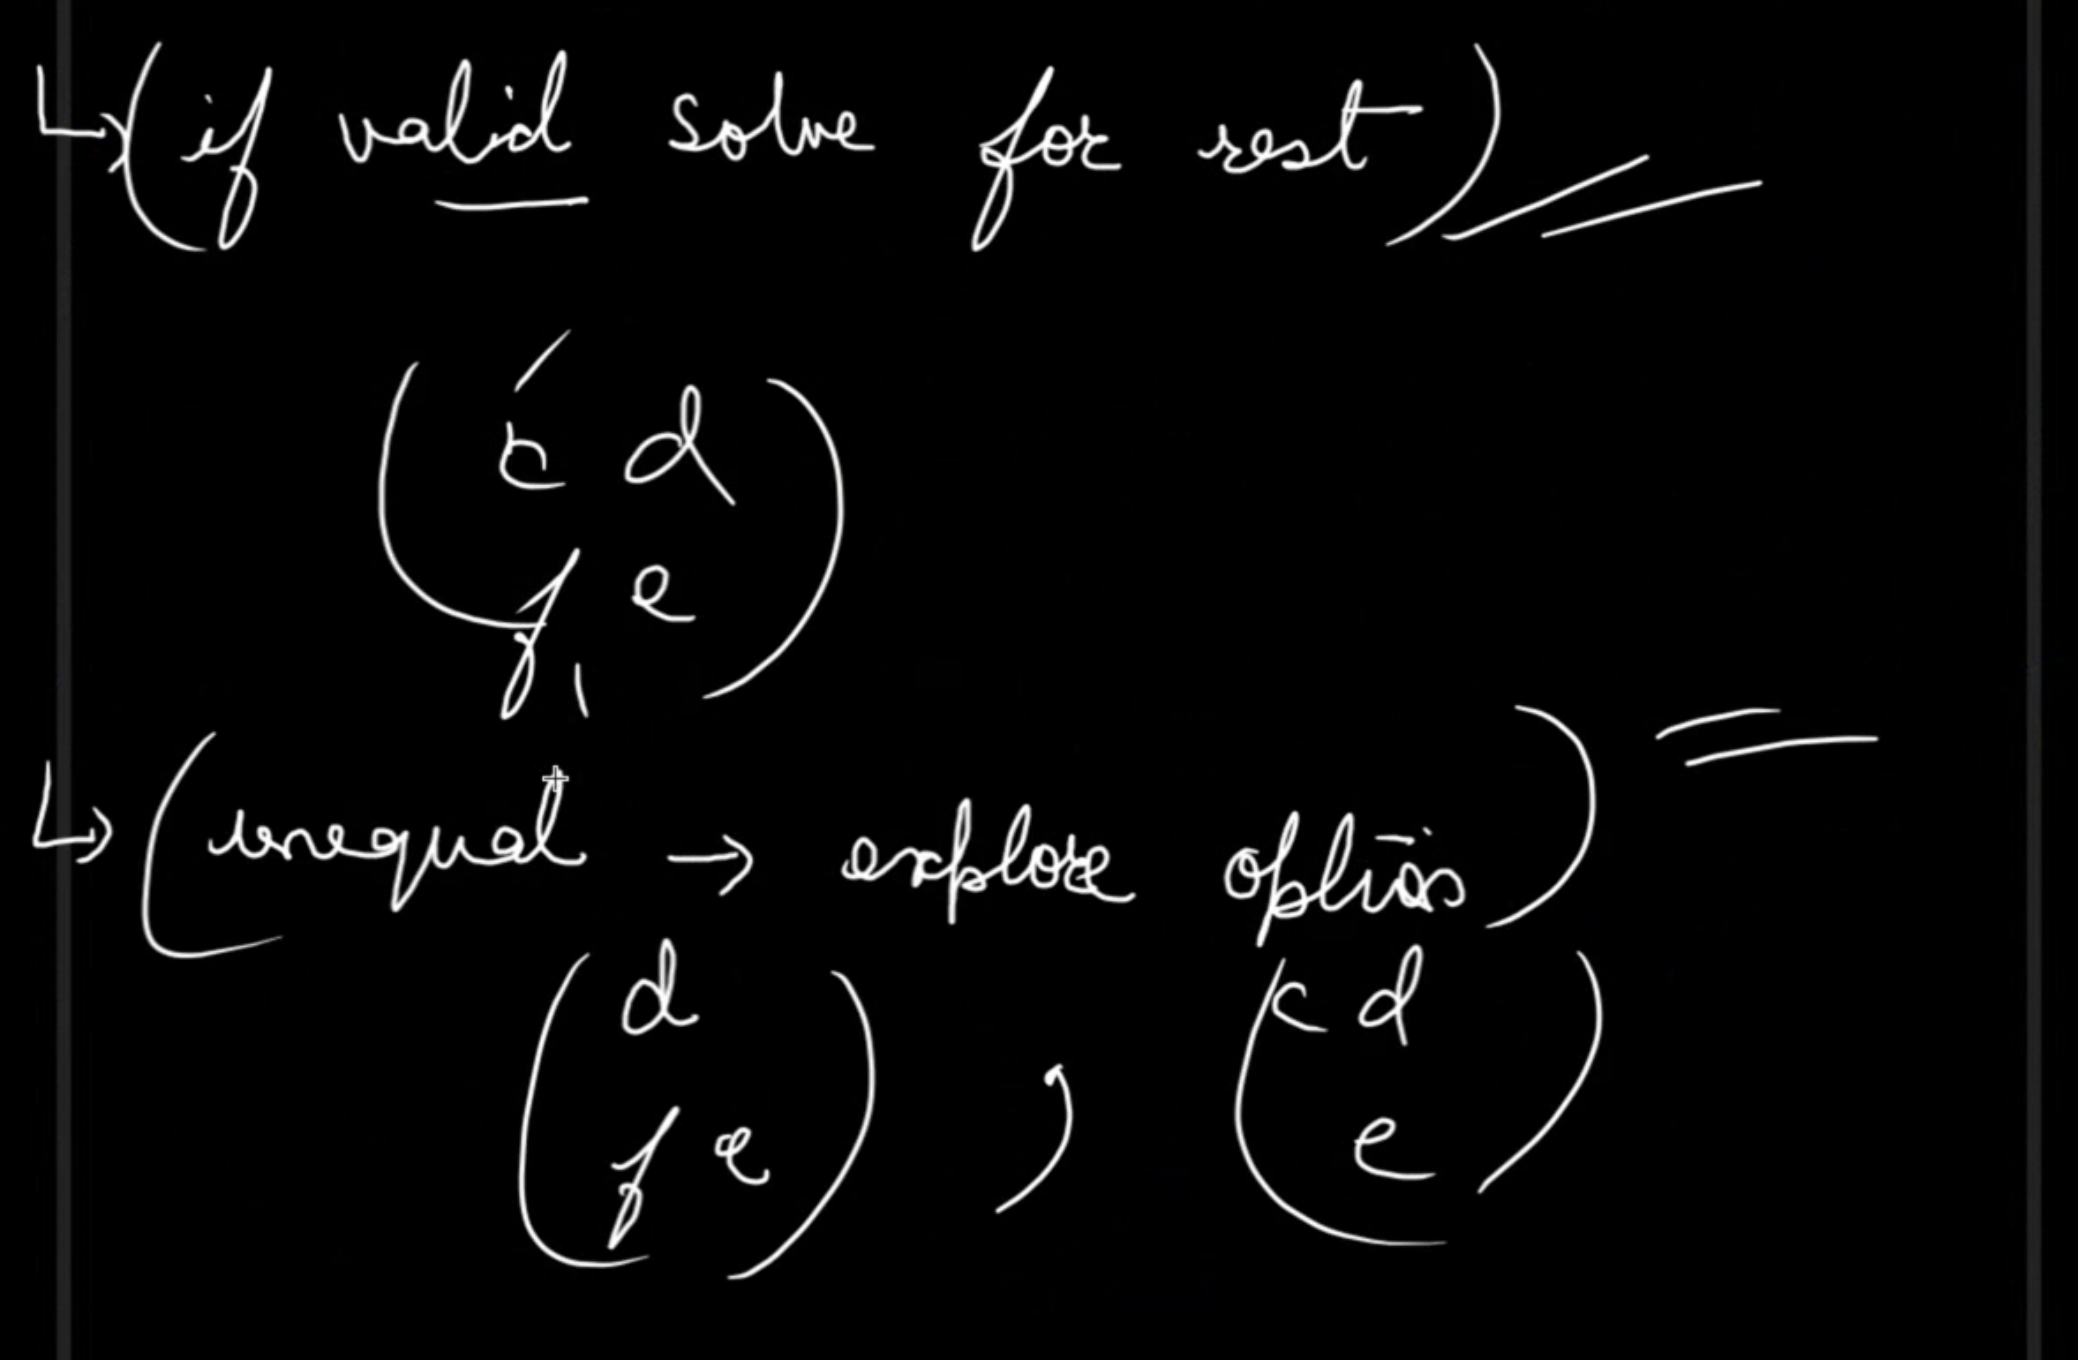 ↳ (if valid solve for rest)
( c d
f e )
↳ (unequal → explore options)
( d
f e ) , ( c d
e )